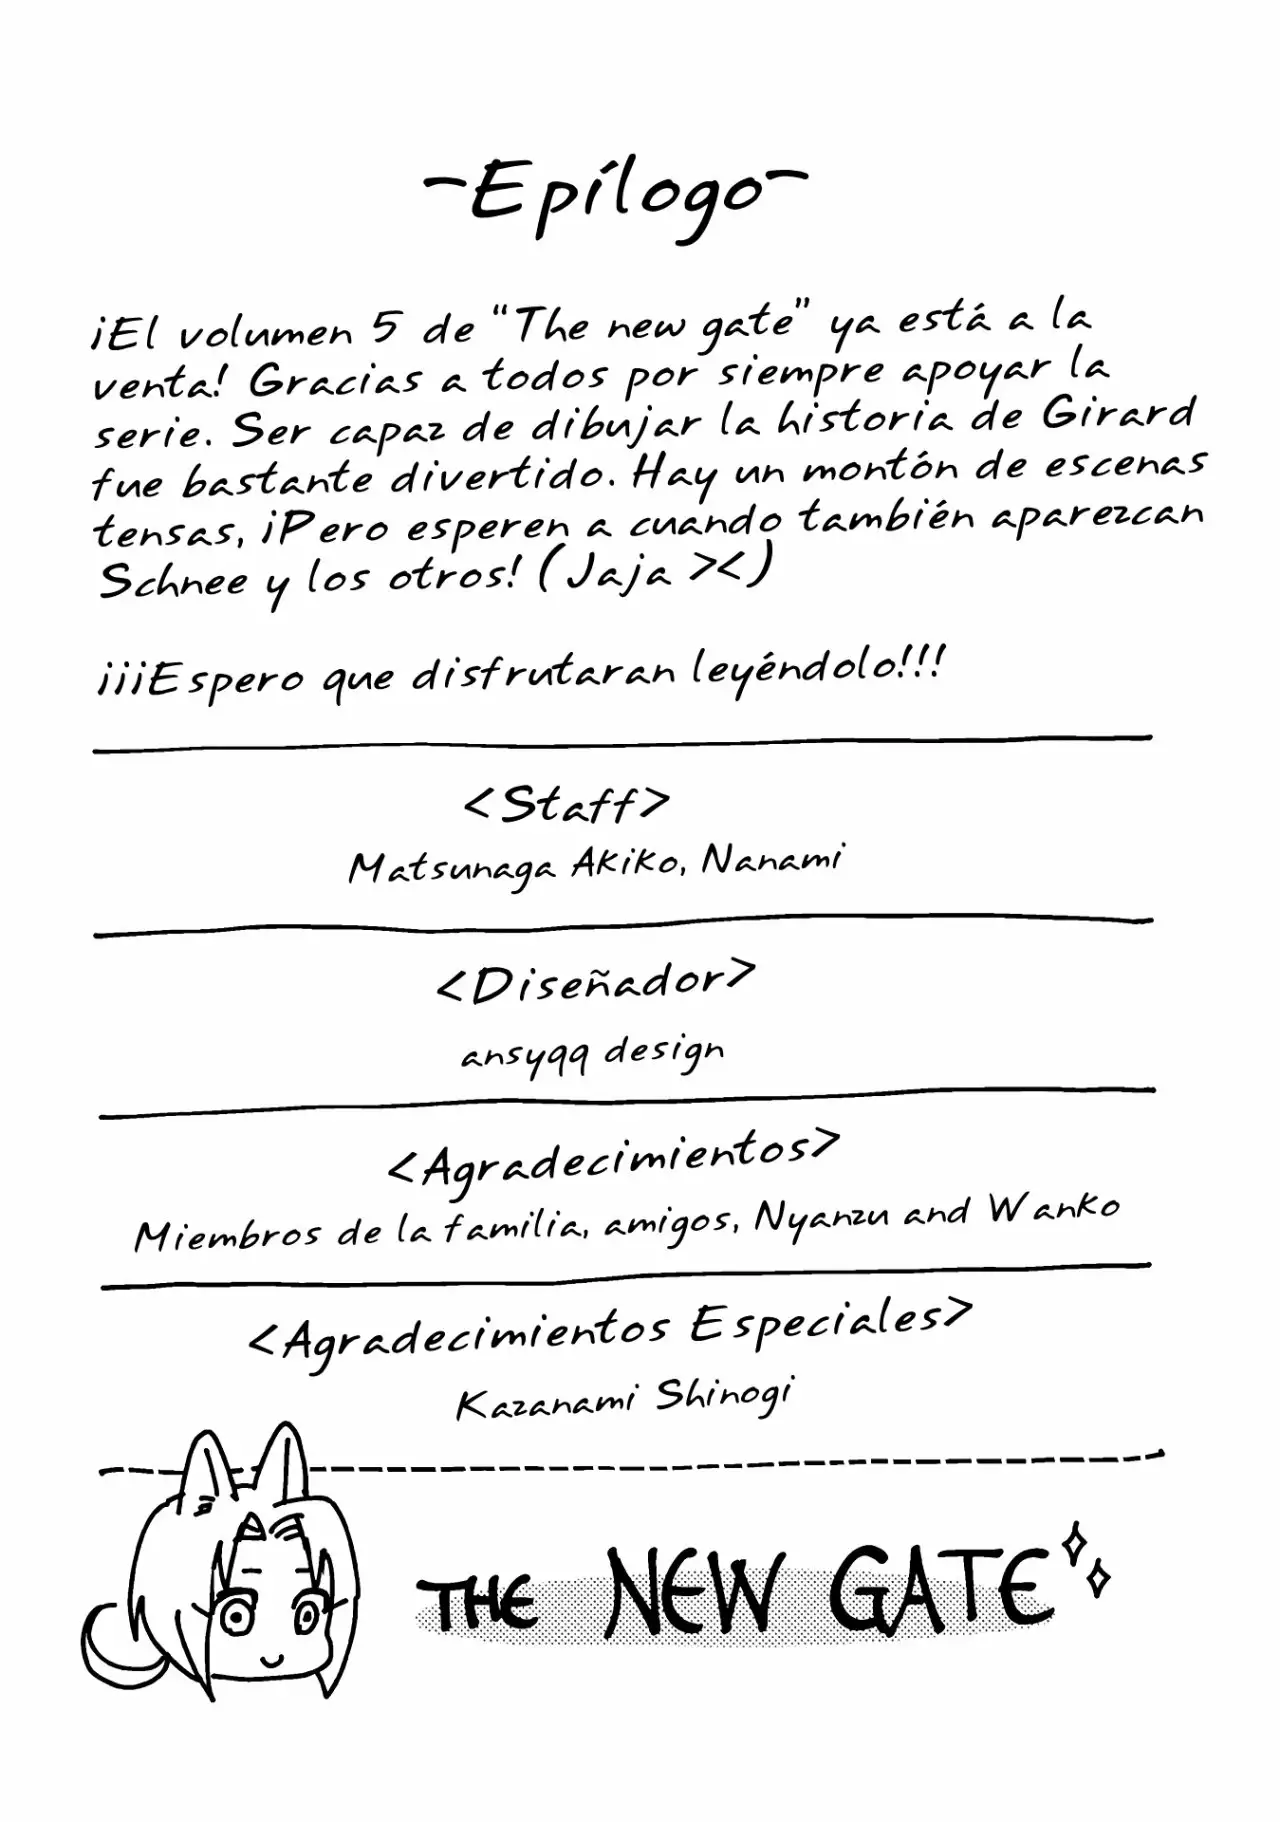 -Epílogo-
¡El volumen 5 de "The new gate" ya está a la
venta! Gracias a todos por siempre apoyar la
serie. Ser capaz de dibujar la historia de Girard
fue bastante divertido. Hay un montón de escenas
tensas, ¡Pero esperen a cuando también aparezcan
Schnee y los otros! (Jaja ><)
¡¡¡Espero que disfrutaran leyéndolo!!!
<Staff>
Matsunaga Akiko, Nanami
<Diseñador>
ansyqq design
<Agradecimientos>
Miembros de la familia, amigos, Nyanzu and Wanko
<Agradecimientos Especiales>
Kazanami Shinogi
THE NEW GATE